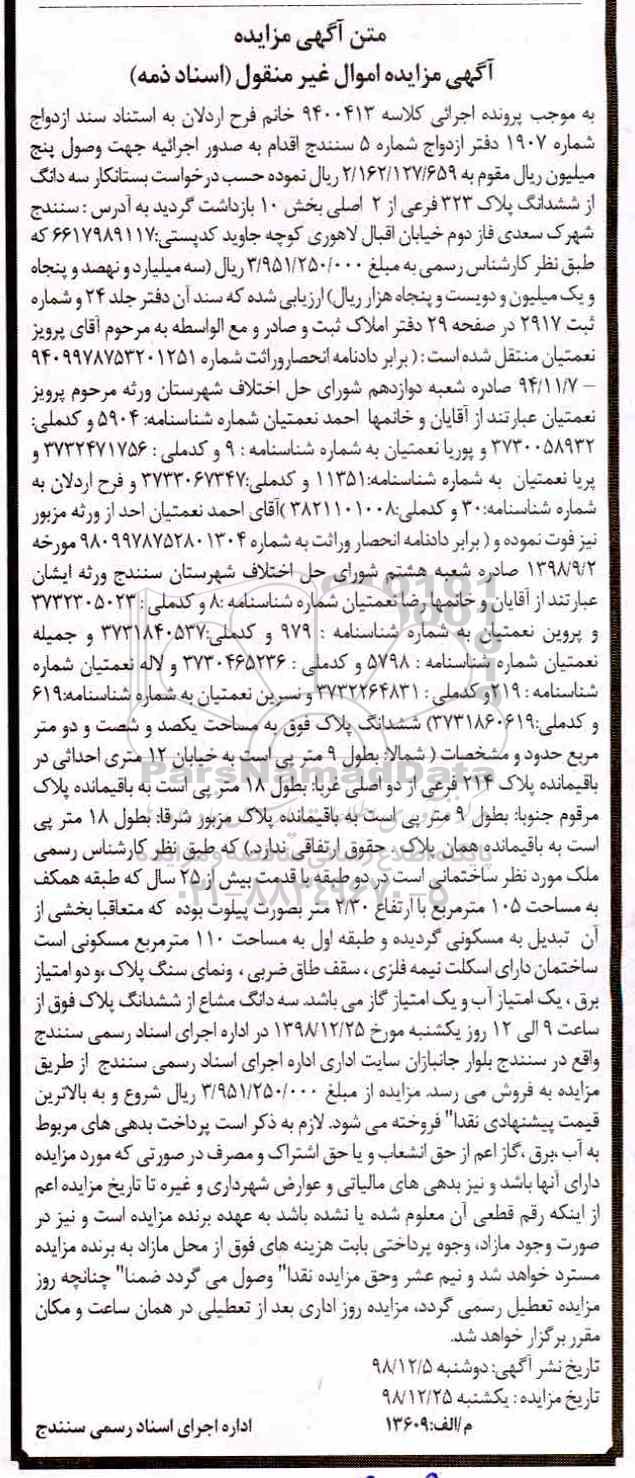 متن آگهی مزایده
آگهی مزایده اموال غیر منقول (اسناد ذمه)
به موجب پرونده اجرائی کلاسه ۹۴۰۰۴۱۳ خانم فرح اردلان به استناد سند ازدواج
شماره ۱۹۰۷ دفتر ازدواج شماره ۵ سنندج اقدام به صدور اجرائیه جهت وصول پنج
میلیون ریال مقوم به ۲/۱۶۲/۱۲۷/۶۵۹ ریال نموده حسب درخواست بستانکار سه دانگ
از ششدانگ پلاک ۳۲۳ فرعی از ۲ اصلی بخش ۱۰ بازداشت گردید به آدرس : سنندج
شهرک سعدی فاز دوم خیابان اقبال لاهوری کوچه جاوید کدپستی:۶۶۱۷۹۸۹۱۱۷ که
طبق نظر کارشناس رسمی به مبلغ ۳/۹۵۱/۲۵۰/۰۰۰ ریال (سه میلیارد و نهصد و پنجاه
و یک میلیون و دویست و پنجاه هزار ریال) ارزیابی شده که سند آن دفتر جلد ۲۴ و شماره
ثبت ۲۹۱۷ در صفحه ۲۹ دفتر املاک ثبت و صادر و مع الواسطه به مرحوم آقای پرویز
نعمتیان منتقل شده است : ( برابر دادنامه انحصاروراثت شماره ۹۴۰۹۹۷۸۷۵۳۲۰۱۲۵۱
– ۹۴/۱۱/۷ صادره شعبه دوازدهم شورای حل اختلاف شهرستان ورثه مرحوم پرویز
نعمتیان عبارتند از آقایان و خانمها احمد نعمتیان شماره شناسنامه: ۵۹۰۴ و کدملی:
۳۷۳۰۰۵۸۹۳۲ و پوریا نعمتیان به شماره شناسنامه : ۹ و کدملی : ۳۷۳۲۴۷۱۷۵۶ و
پریا نعمتیان به شماره شناسنامه:۱۱۳۵۱ و کدملی:۳۷۳۳۰۶۷۳۴۷ و فرح اردلان به
شماره شناسنامه:۳۰ و کدملی:۳۸۲۱۱۰۱۰۰۸ )آقای احمد نعمتیان احد از ورثه مزبور
نیز فوت نموده و ( برابر دادنامه انحصار وراثت به شماره ۹۸۰۹۹۷۸۷۵۲۸۰۱۳۰۴ مورخه
۱۳۹۸/۹/۲ صادره شعبه هشتم شورای حل اختلاف شهرستان سنندج ورثه ایشان
عبارتند از آقایان و خانمها رضا نعمتیان شماره شناسنامه :۸ و کدملی : ۳۷۳۲۳۰۵۰۲۳
و پروین نعمتیان به شماره شناسنامه : ۹۷۹ و کدملی:۳۷۳۱۸۴۰۵۳۷ و جمیله
نعمتیان شماره شناسنامه : ۵۷۹۸ و کدملی : ۳۷۳۰۴۶۵۲۳۶ و لاله نعمتیان شماره
شناسنامه : ۲۱۹و کدملی : ۳۷۳۲۲۶۴۸۳۱ و نسرین نعمتیان به شماره شناسنامه:۶۱۹
و کدملی:۳۷۳۱۸۶۰۶۱۹) ششدانگ پلاک فوق به مساحت یکصد و شصت و دو متر
مربع حدود و مشخصات ( شمالا: بطول ۹ متر پی است به خیابان ۱۲ متری احداثی در
باقیمانده پلاک ۲۱۴ فرعی از دو اصلی غربا: بطول ۱۸ متر پی است به باقیمانده پلاک
مرقوم جنوبا: بطول ۹ متر پی است به باقیمانده پلاک مزبور شرقا: بطول ۱۸ متر پی
است به باقیمانده همان پلاک . حقوق ارتفاقی ندارد.) که طبق نظر کارشناس رسمی
ملک مورد نظر ساختمانی است در دو طبقه با قدمت بیش از ۲۵ سال که طبقه همکف
به مساحت ۱۰۵ مترمربع با ارتفاع ۲/۳۰ متر بصورت پیلوت بوده که متعاقبا بخشی از
آن تبدیل به مسکونی گردیده و طبقه اول به مساحت ۱۱۰ مترمربع مسکونی است
ساختمان دارای اسکلت نیمه فلزی ، سقف طاق ضربی ، ونمای سنگ پلاک ،و دو امتیاز
برق ، یک امتیاز آب و یک امتیاز گاز می باشد. سه دانگ مشاع از ششدانگ پلاک فوق از
ساعت ۹ الی ۱۲ روز یکشنبه مورخ ۱۳۹۸/۱۲/۲۵ در اداره اجرای اسناد رسمی سنندج
واقع در سنندج بلوار جانبازان سایت اداری اداره اجرای اسناد رسمی سنندج از طریق
مزایده به فروش می رسد. مزایده از مبلغ ۳/۹۵۱/۲۵۰/۰۰۰ ریال شروع و به بالاترین
قیمت پیشنهادی نقدا" فروخته می شود. لازم به ذکر است پرداخت بدهی های مربوط
به آب ،برق ،گاز اعم از حق انشعاب و یا حق اشتراک و مصرف در صورتی که مورد مزایده
دارای آنها باشد و نیز بدهی های مالیاتی و عوارض شهرداری و غیره تا تاریخ مزایده اعم
از اینکه رقم قطعی آن معلوم شده یا نشده باشد به عهده برنده مزایده است و نیز در
صورت وجود مازاد، وجوه پرداختی بابت هزینه های فوق از محل مازاد به برنده مزایده
مسترد خواهد شد و نیم عشر وحق مزایده نقدا" وصول می گردد ضمنا" چنانچه روز
مزایده تعطیل رسمی گردد، مزایده روز اداری بعد از تعطیلی در همان ساعت و مکان
مقرر برگزار خواهد شد.
تاریخ نشر آگهی: دوشنبه ۹۸/۱۲/۵
تاریخ مزایده : یکشنبه ۹۸/۱۲/۲۵
م/الف:۱۳۶۰۹ اداره اجرای اسناد رسمی سنندج
ParsNamadData
۰۲۱-۸۸۳۴۹۶۷۰-۵